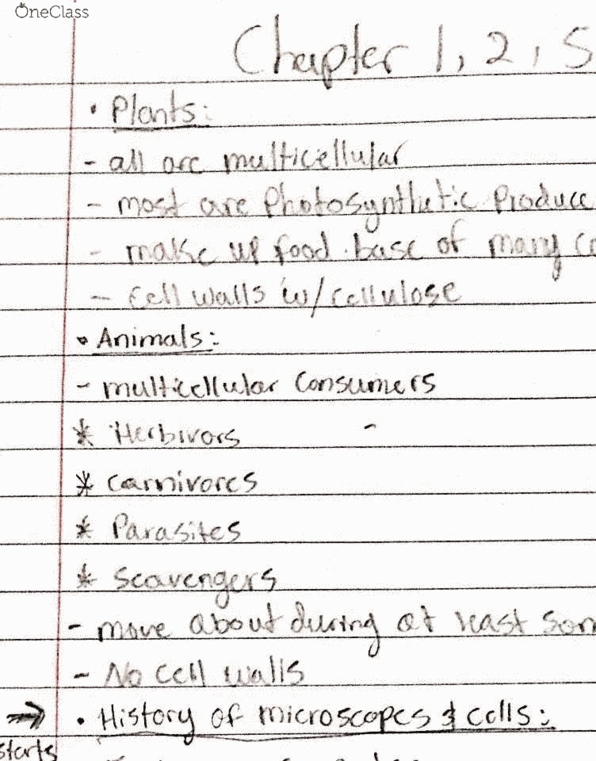 OneClass
Chapter 1, 2, 5
• Plants:
- all are multicellular
- most are Photosynthetic Produce
- make up food base of many co
- cell walls w/cellulose
• Animals:
- multicellular consumers
* Herbivors
* carnivores
* Parasites
* scavengers
- move about during at least som
- No cell walls
→ • History of microscopes & cells:
starts